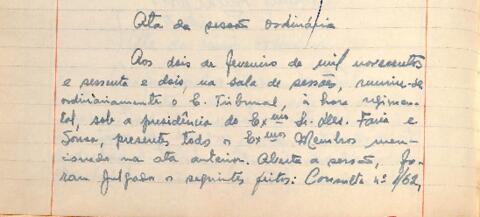 Ata da sessão ordinária
Aos dois de fevereiro de mil novecentos
e sessenta e dois, na sala de sessões, reuniu-se
ordinariamente o E. Tribunal, à hora regimen-
tal, sob a presidência do Exmo Sr. Des. Faria e
Sousa, presentes todos os Exmos Membros men-
cionados na ata anterior. Aberta a sessão, fo-
ram julgados os seguintes feitos: Consulta nº 1/62,